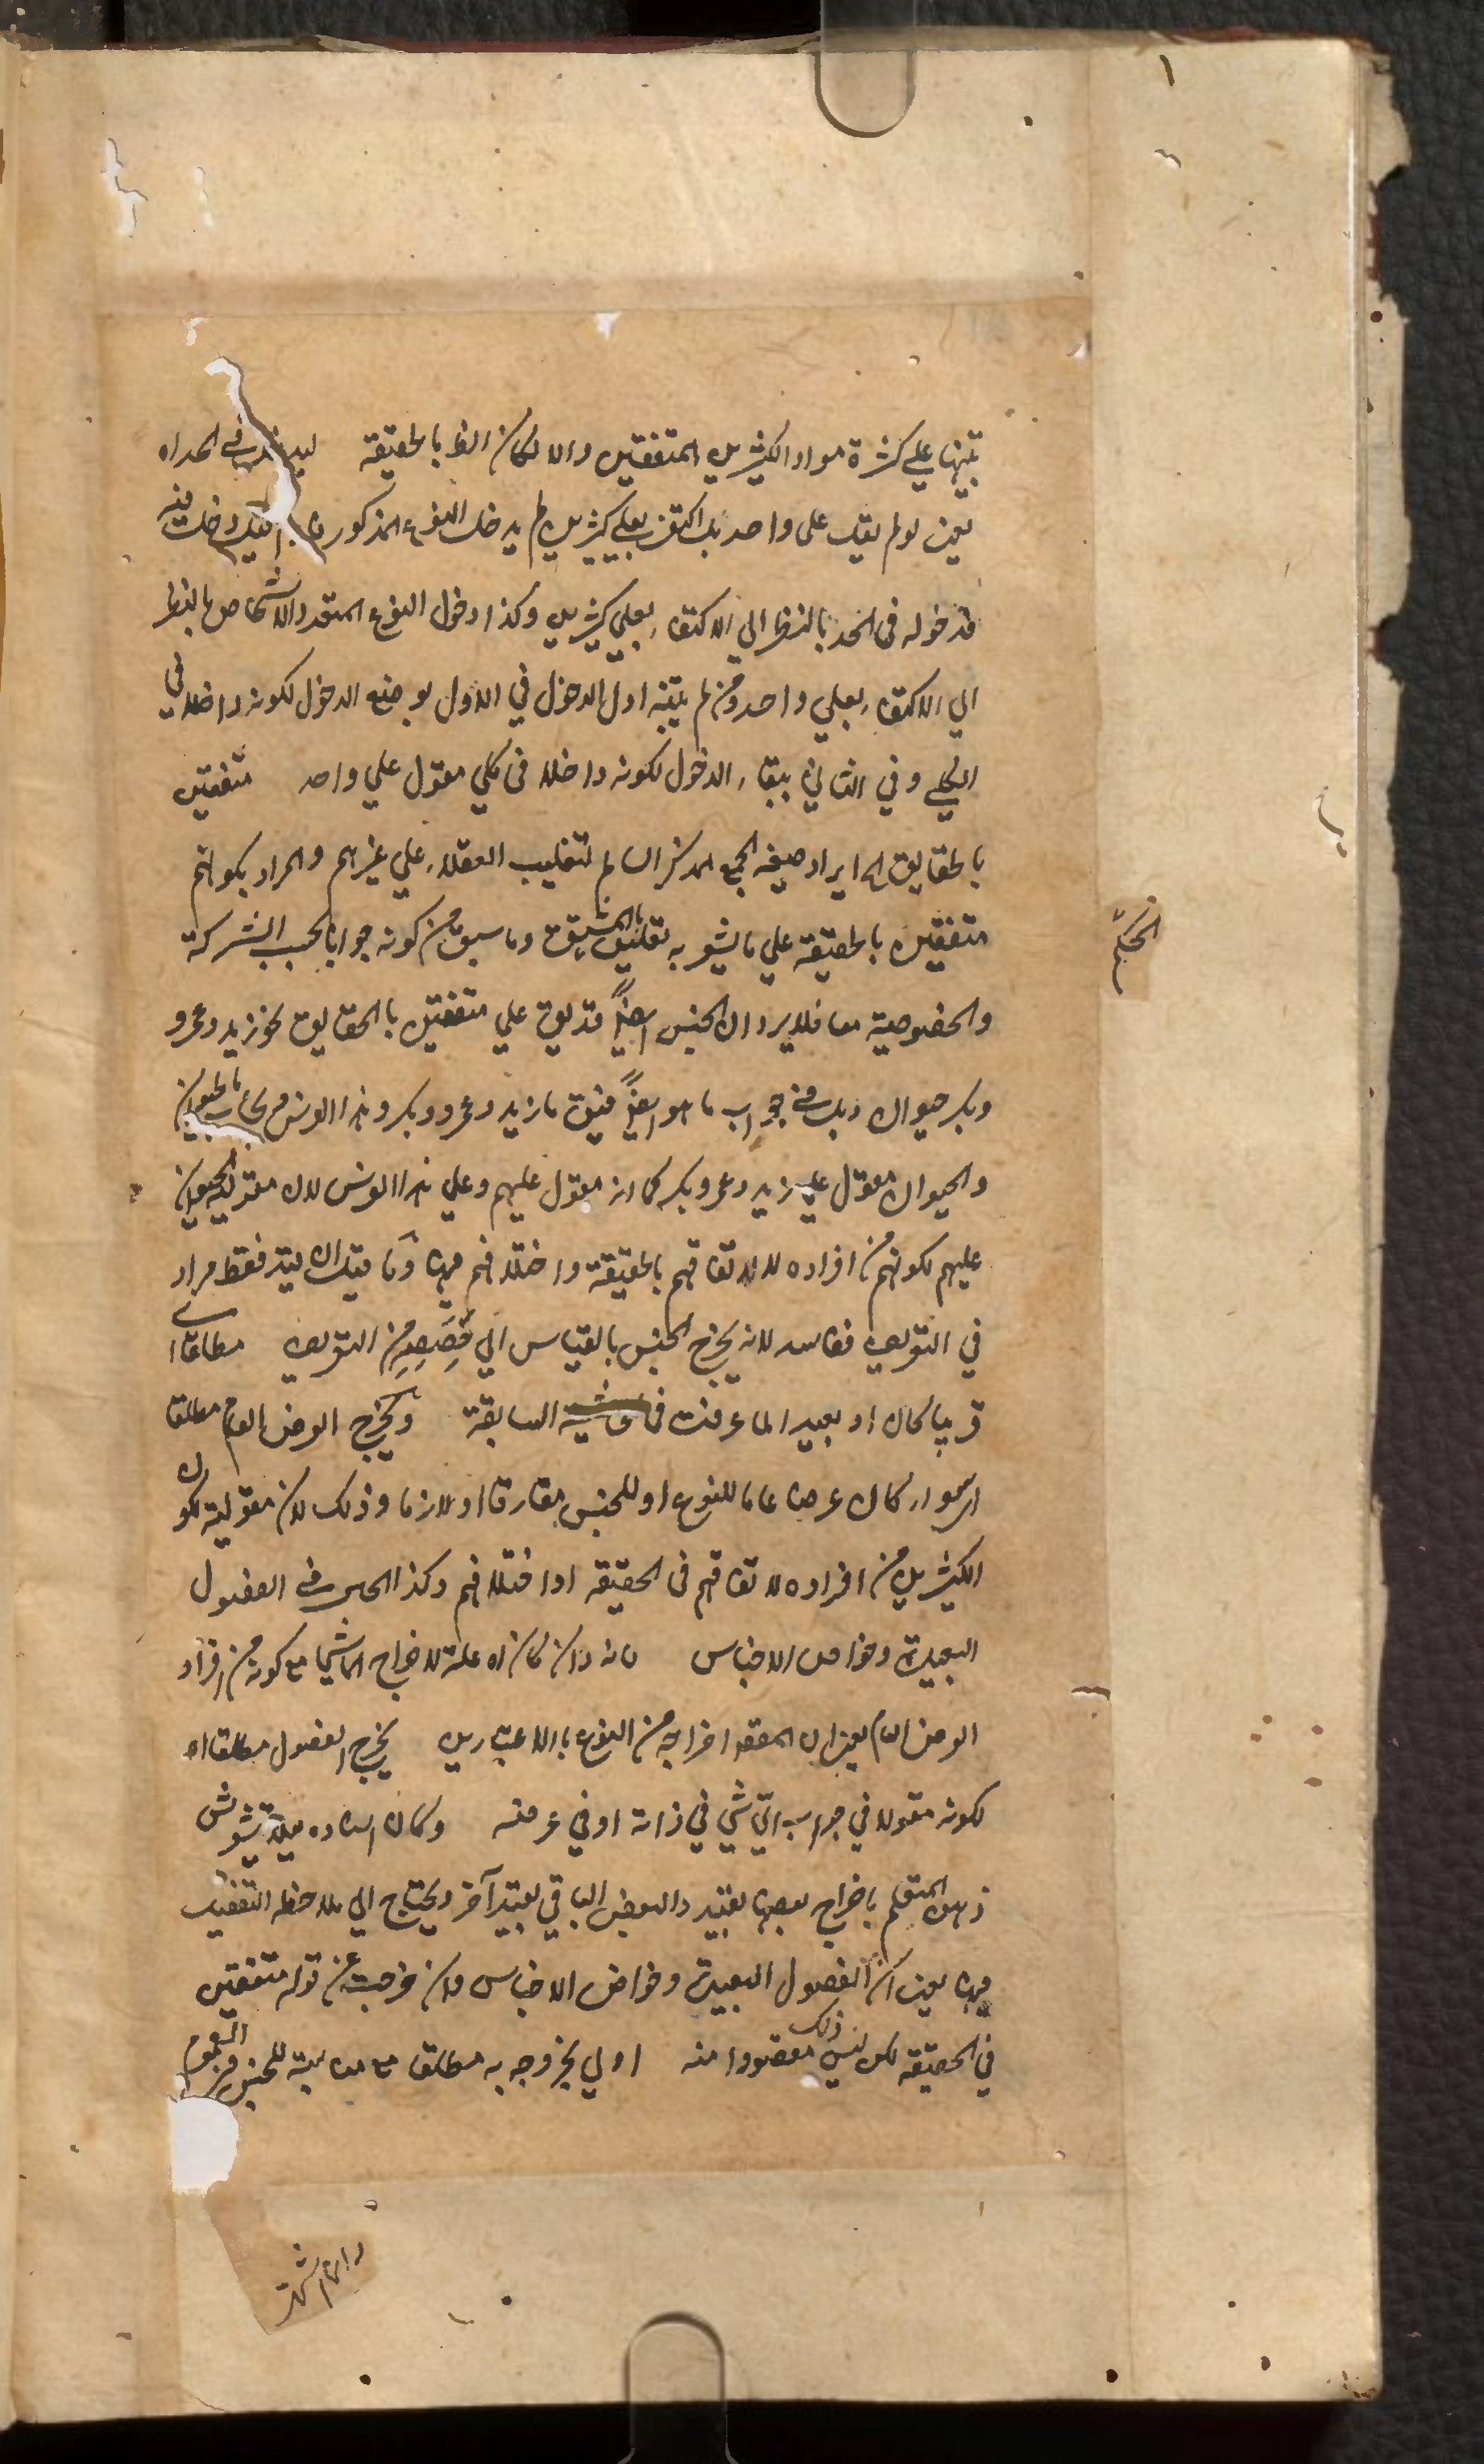 ١
تنبيها على كثرة مواد الكثيرين المتفقين والا لكان الظ بالحقيقة ليدخل في الحد اه
يعنى لو لم يقل على واحد بل اكتفى بعلي كثيرين لم يدخل النوع المذكور
فدخوله في الحد بالنظر الي الاكتفاء بعلي كثيرين وكذا دخول النوع المتعدد الاشخاص بالنظر
الي الاكتفاء بعلي واحد ومن لم يتنبه اول الدخول في الاول بوضع الدخول لكونه داخلا في
الكلي وفي الثاني ببقاء الدخول لكونه داخلا في كلي مقول علي واحد متفقين
بالحقايق اه ايراد صيغه الجمع المذكر السالم لتغليب العقلاء علي غيرهم والمراد بكونهم
متفقين بالحقيقة علي ما يشعر به تعليق الحكم بالمشتق وما سبق من كونه جوابا بحسب الشركة
والخصوصية معا فلا يرد ان الجنس ايضاً قد يق علي متفقين بالحقايق نحو زيد وعمرو
وبكر حيوان وبل في جواب ما هو ايضاً فيق ما زيد وعمرو وبكر وهذا الفرس فيجاب بالحيوان
والحيوان مقول علي زيد وعمرو وبكر كما انه مقول عليهم وعلي هذا الفرس لان مقولية الحيوان
عليهم لكونهم من افراده لا لاتفاقهم بالحقيقة واختلافهم فيها وما قيل ان قيد فقط مراد
في التعريف ففاسد لانه يخرج الجنس بالقياس الي حصصه من التعريف مطلقا اى
قريبا كان او بعيدا لما عرفت في الحاشية السابقة ويخرج العرض العام مطلقا
اى سواء كان عرضا عاما للنوع او للجنس مفارقا او لازما وذلك لان مقوليته لكون
الكثيرين من افراده لا لاتفاقهم في الحقيقه او اختلافهم وكذا الحال في الفصول
البعيدة وخواص الاجناس فانه وان كان اه علة لاخراج الماشي مع كونه من افراد
العرض العام يعنى ان المقصود اخراجه من النوع بالاعتبارين يخرج الفصول مطلقا اه
لكونه مقولا في جواب اي شي في ذاته او في عرضه وكان استاده ميلا تشوش
ذهن المتعلم باخراج بعضها بقيد والبعض الباقي بقيد آخر ويحتاج الي ملاحظه التفصيل
فيها يعنى ان الفصول البعيدة وخواص الاجناس وان خرجت عن قوله متفقين
في الحقيقه لكن ليس ذلك مقصودا منه اولي لخروجه به مطلقا مع مناسبته للجنس في العموم
الحكم